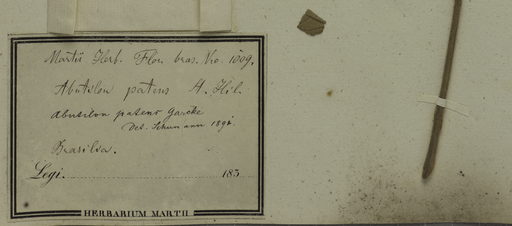 Martii Herb. Flor. bras. No. 1009.
Abutilon patens A. Hil.
Abutilon patens Garcke
Det. Schumann 1891.
Brasilia.
Legi. 183
HERBARIUM MARTII